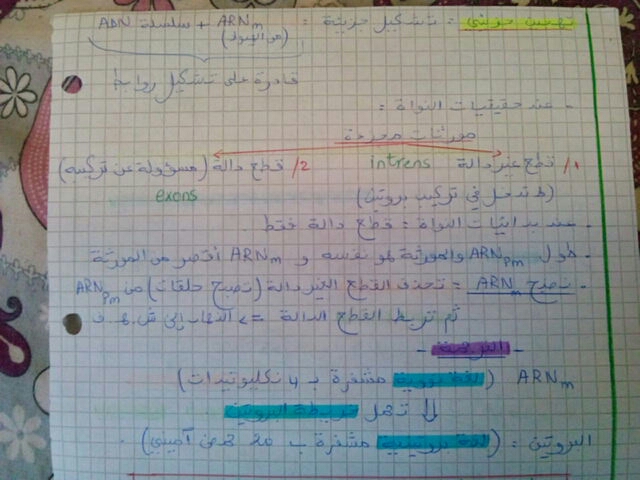 تهجين جزيئي : تشكيل جزيئة = ARNm + سلسلة ADN
(من الهيولى)
قادرة على تشكيل روابط
- عند حقيقيات النواة :
مورثات مجزأة
1/ قطع غير دالة introns 2/ قطع دالة (مسؤولة عن تركيبه)
exons
(لا تدخل في تركيب بروتين)
- عند بدائيات النواة : قطع دالة فقط.
- طول ARNpm والمورثة هو نفسه و ARNm أقصر من المورثة
- نضج ARNm : تحذف القطع الغير دالة (تصبح حلقات) من ARNpm
ثم تربط القطع الدالة => الذهاب إلى ش.ه.ف
- الترجمة -
ARNm (لغة نووية مشفرة ب 4 نكليوتيدات)
⇓ تحمل خريطة البروتين
البروتين : (لغة بروتينية مشفرة ب 20 حمض أميني).